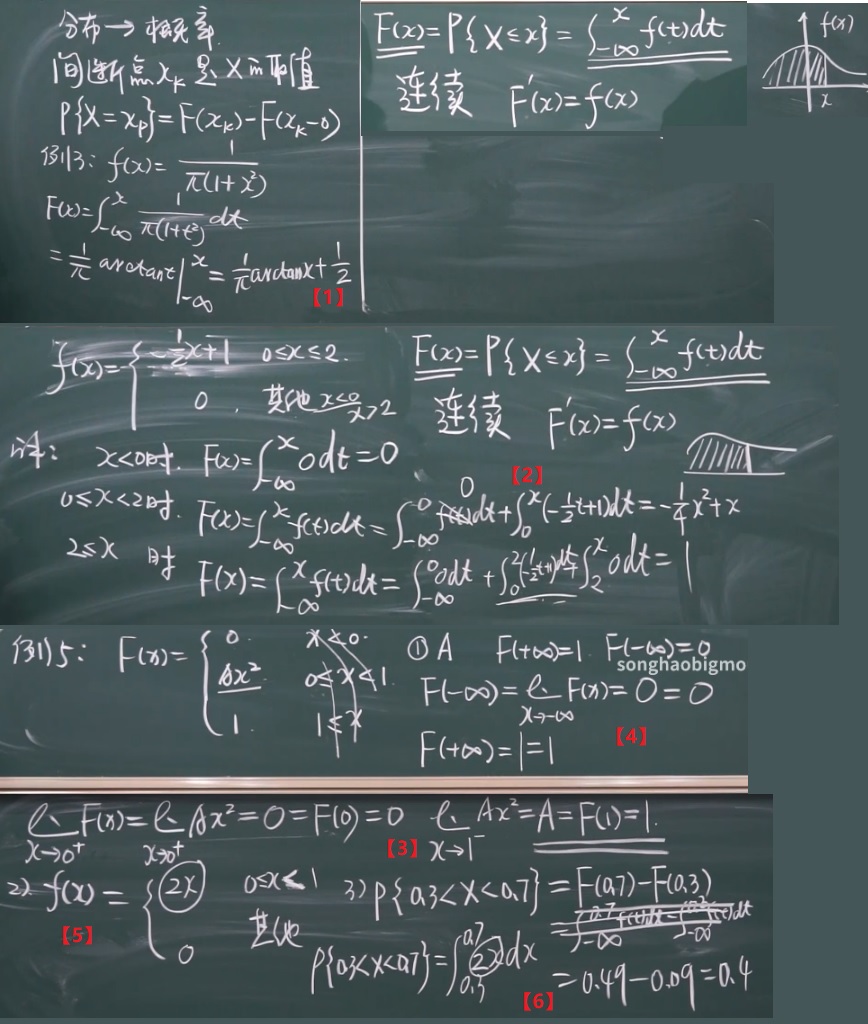 分布→概率
间断点x_k是X的取值
P{X=x_k}=F(x_k)-F(x_k-0)
例3: f(x)=1/(π(1+x²))
F(x)=∫_{-∞}^{x} 1/(π(1+t²)) dt
=1/π arctant|_{-∞}^{x}=1/π arctanx+1/2
【1】
F(x)=P{X≤x}=∫_{-∞}^{x} f(t)dt
连续 F'(x)=f(x)
f(x)
x
f(x)={-1/2x+1 0≤x≤2.
0, 其他 x<0 x>2
F(x)=P{X≤x}=∫_{-∞}^{x} f(t)dt
连续 F'(x)=f(x)
【2】
解: x<0时. F(x)=∫_{-∞}^{x} 0dt=0
0≤x<2时. F(x)=∫_{-∞}^{x} f(t)dt=∫_{-∞}^{0} 0dt+∫_{0}^{x}(-1/2t+1)dt=-1/4x²+x
2≤x 时 F(x)=∫_{-∞}^{x} f(t)dt=∫_{-∞}^{0} 0dt+∫_{0}^{2}(-1/2t+1)dt+∫_{2}^{x} 0dt=1
例5: F(x)={0. x<0.
Ax². 0≤x<1.
1. 1≤x
①A F(+∞)=1. F(-∞)=0
songhaobigmo
F(-∞)=lim_{x→-∞} F(x)=0=0
【4】
F(+∞)=1=1
lim_{x→0⁺} F(x)=lim_{x→0⁺} Ax²=0=F(0)=0 lim_{x→1⁻} Ax²=A=F(1)=1.
【3】
2) f(x)={2x 0≤x<1
0 其他
【5】
3) P{0.3<X<0.7}=F(0.7)-F(0.3)
=∫_{-∞}^{0.7} f(t)dt-∫_{-∞}^{0.3} f(t)dt
=0.49-0.09=0.4
P{0.3<X<0.7}=∫_{0.3}^{0.7} 2xdx
【6】